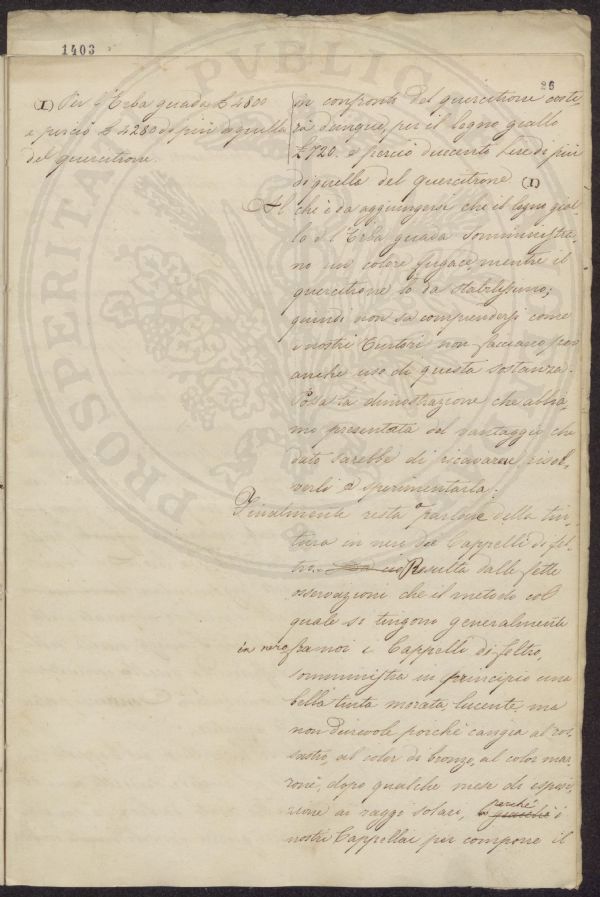 1403
26
(1) Per l'Erba guada £ 4800
e perciò £ 4280 di più di quella
del quercitrone.
in confronti del quercitrone coste,
rà dunque, per il legno giallo
£ 720. e perciò duecento Lire di più
di quella del Quercitrone. (1)
Al che è da aggiungersi che il legno gial,
lo e l'Erba guada somministra,
no un colore fugace, mentre il
quercitrone lo da stabilissimo;
quindi non sa comprendersi come
i nostri Tintori non facciano per
anche uso di questa sostanza.
Possa la dimostrazione che abbia,
mo presentata del vantaggio che
dato sarebbe di ricavarne risol,
verli a sperimentarla.
Finalmente resta a parlare della tin,
tura in nero dei Cappelli di fel,
tro. Da ciò Risulta dalle fatte
osservazioni che il metodo col
quale si tingono generalmente
in nero framoi i Cappelli di feltro,
somministra in principio una
bella tinta morata lucente, ma
non durevole porchè cangia al ros,
sastro, al color di bronzo, al color mar,
rone, dopo qualche mese di esposi,
zione ai raggi solari, perchè
giacchè i
nostri Cappellai per comporre il
PROSPERITA PUBLIC